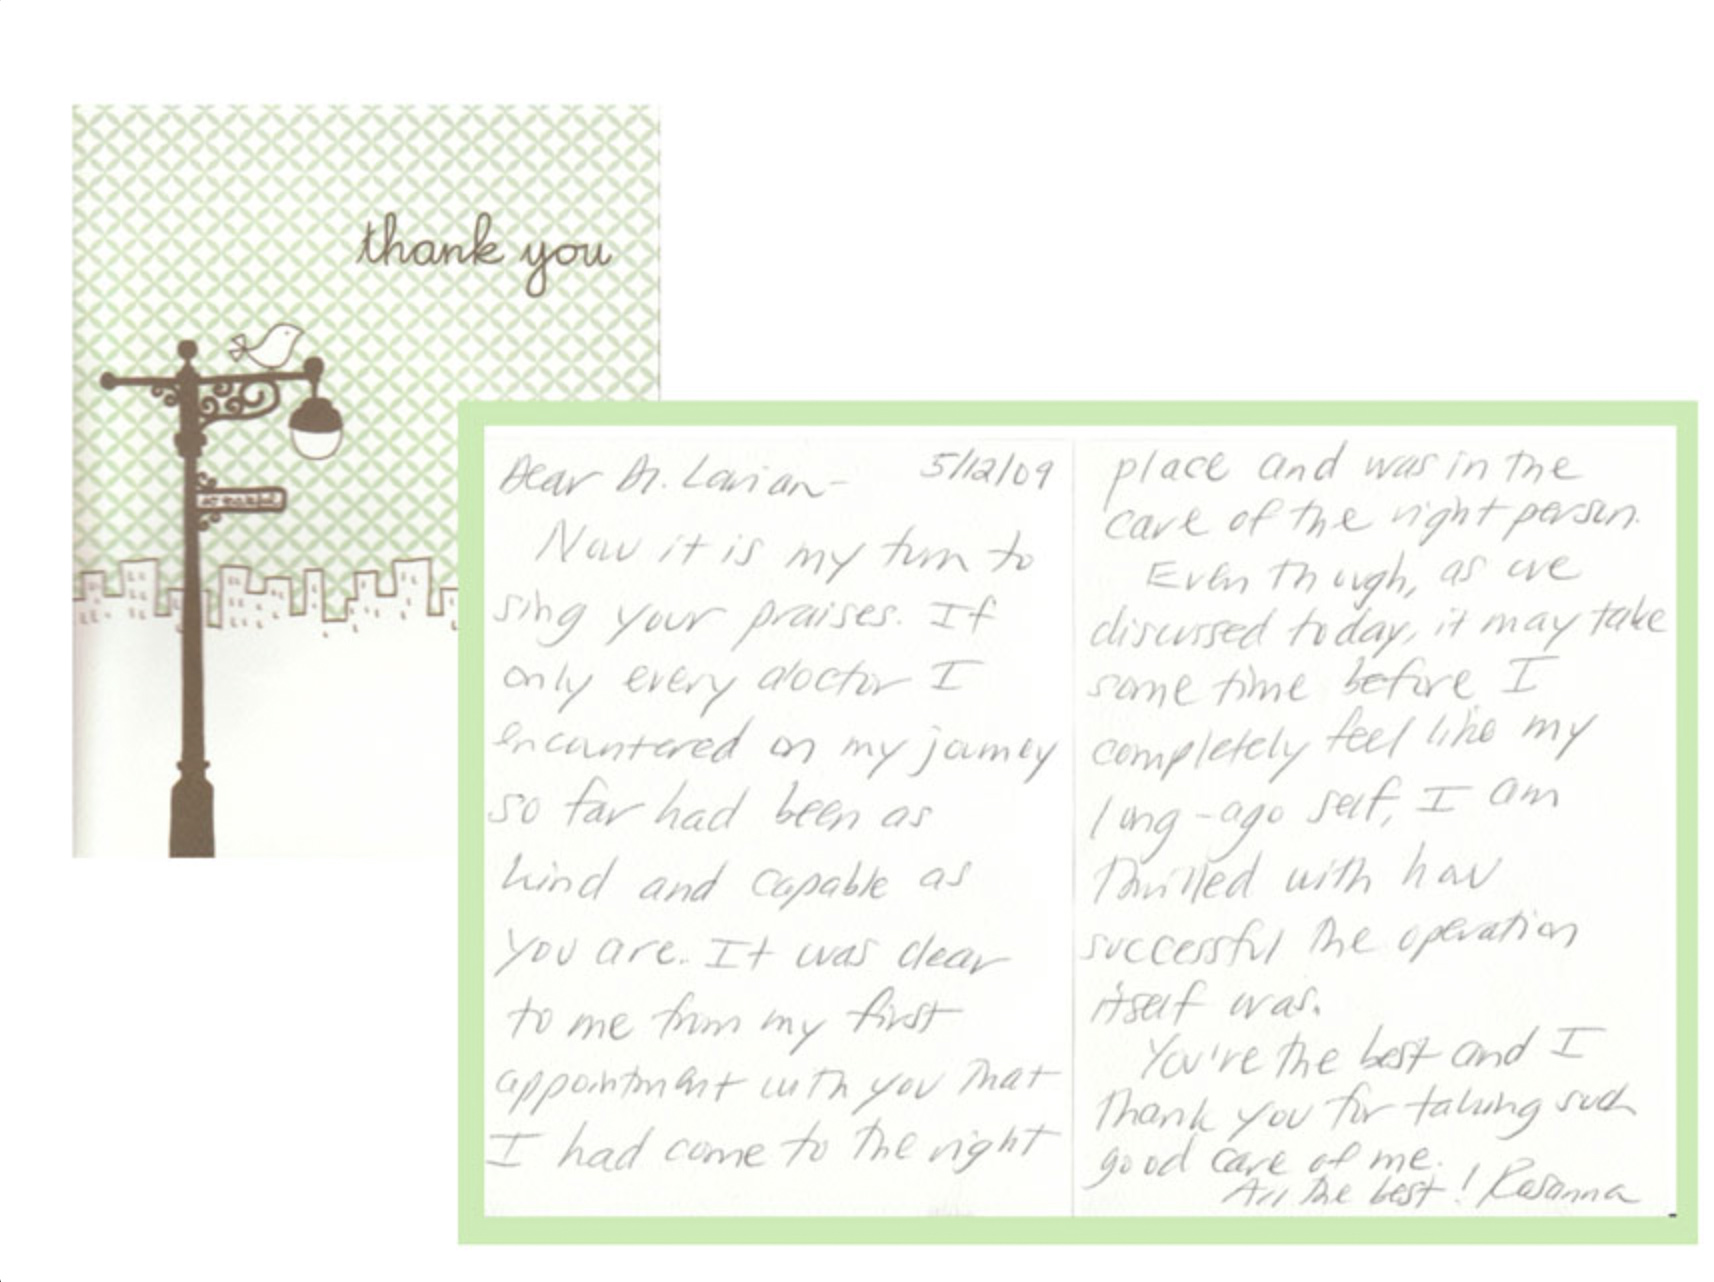 thank you
Dear Dr. Larian- 5/12/09
Now it is my turn to
sing your praises. If
only every doctor I
encountered on my journey
so far had been as
kind and capable as
you are. It was clear
to me from my first
appointment with you that
I had come to the right
place and was in the
care of the right person.
Even though, as we
discussed today, it may take
some time before I
completely feel like my
long-ago self, I am
thrilled with how
successful the operation
itself was.
You're the best and I
thank you for taking such
good care of me.
All the best! Rosanna